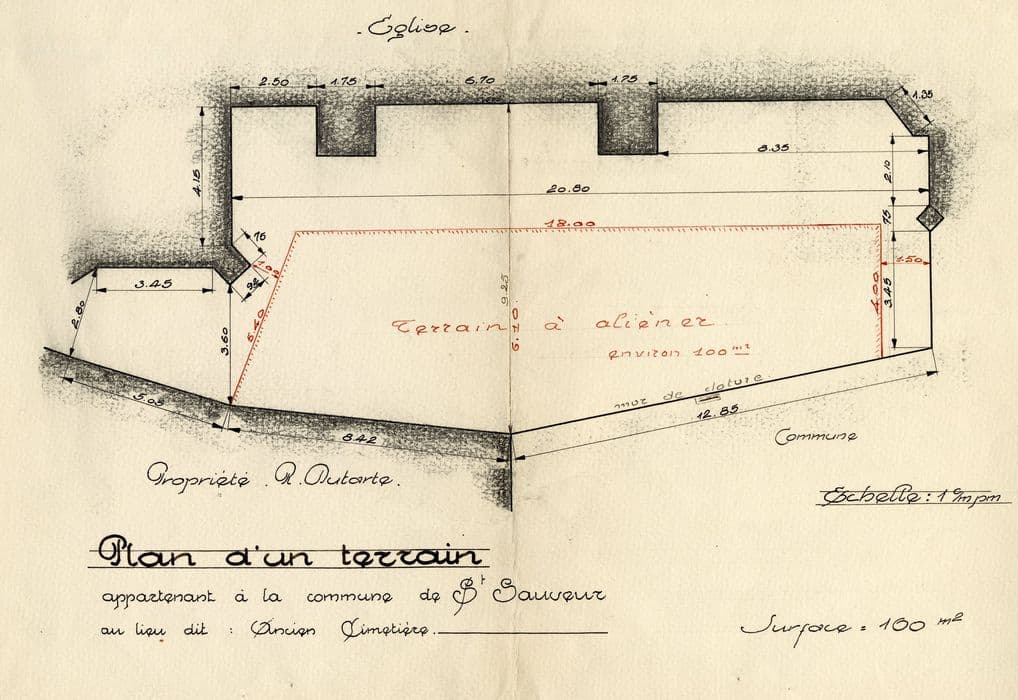 . Eglise .
2.50 1.75 6.70 1.75
1.35
4.15
8.35
2.10
20.80
18.00
75
76
1.50
3.45
2.80
3.60
5.40
9.25
6.20
4.00
3.45
Terrain à aliéner
environ 100 m²
mur de cloture
12.85
5.05
8.42
Commune
Propriété . R. Dutarte.
Echelle : 1 c/m pm
Plan d'un terrain
appartenant à la commune de St Sauveur
au lieu dit : Ancien Cimetière.
Surface = 160 m²